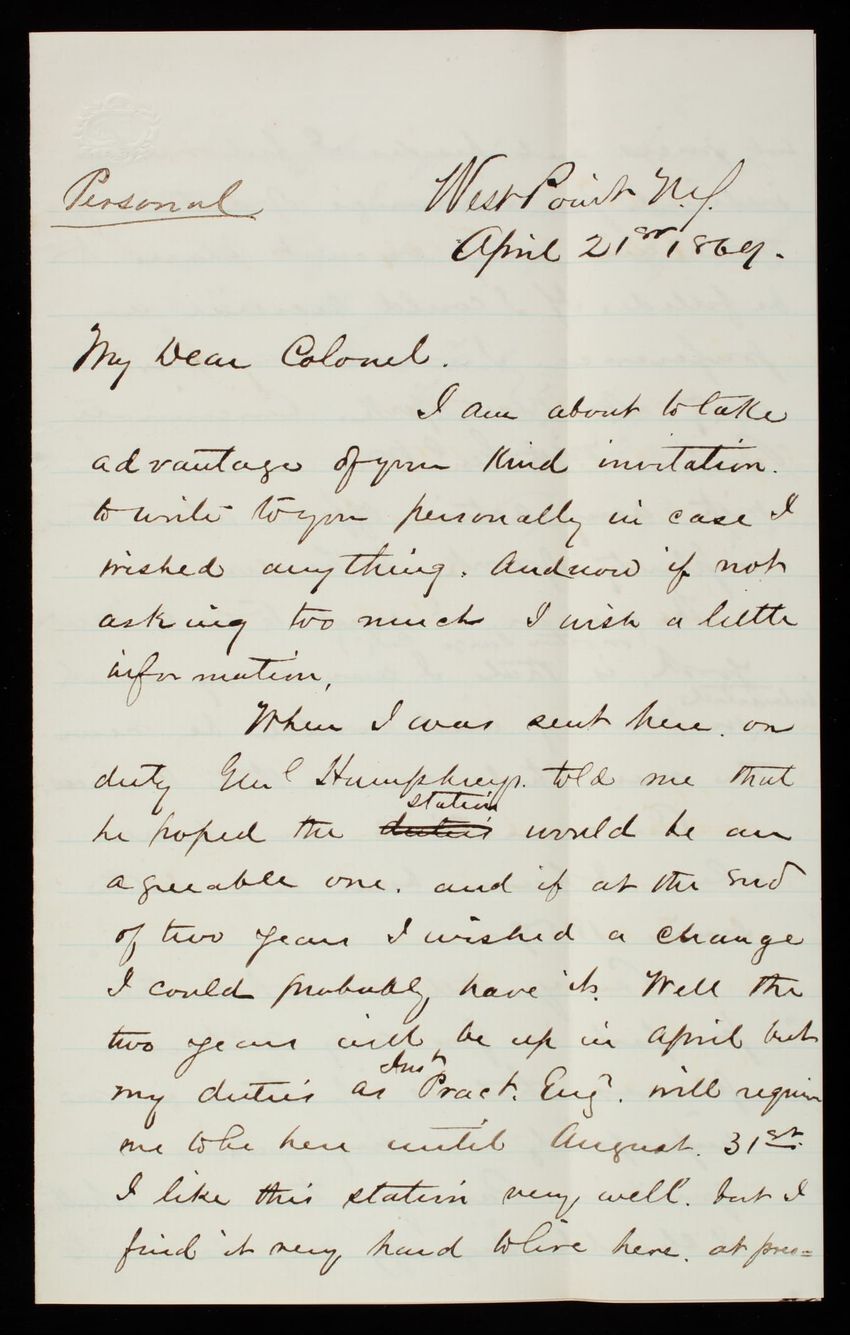 Personal
West Point N.Y.
April 21st 1869.
My Dear Colonel.
I am about to take
advantage of your kind invitation.
to write to you personally in case I
wished anything. And now if not
asking too much I wish a little
information.
When I was sent here. on
duty Genl Humphreys. told me that
station
he hoped the duties would be an
agreeable one. and if at the end
of two years I wished a change
I could probably have it. Well the
two years will be up in April but
Inst
my duties as Pract. Engr. will require
me to be here until August. 31st.
I like this station very well. but I
find it very hard to live here. at pres=